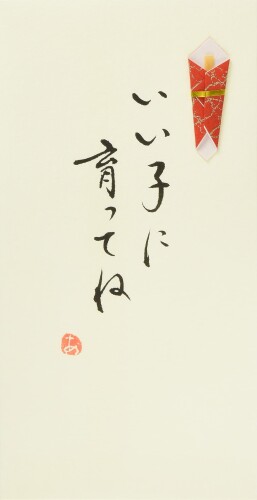 いい子に
育ってね
あ